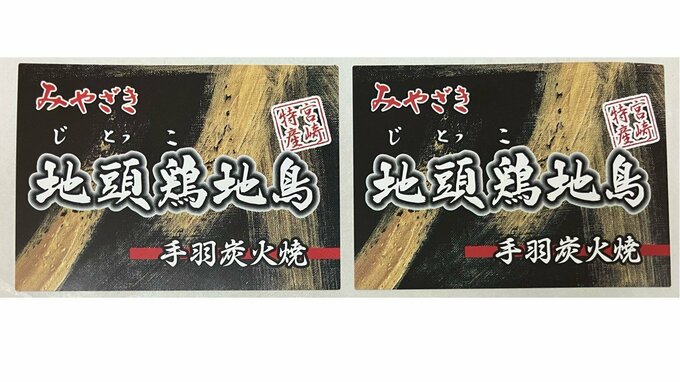 みやざき
宮崎
特産
じとっこ
地頭鶏地鳥
手羽炭火焼
みやざき
宮崎
特産
じとっこ
地頭鶏地鳥
手羽炭火焼